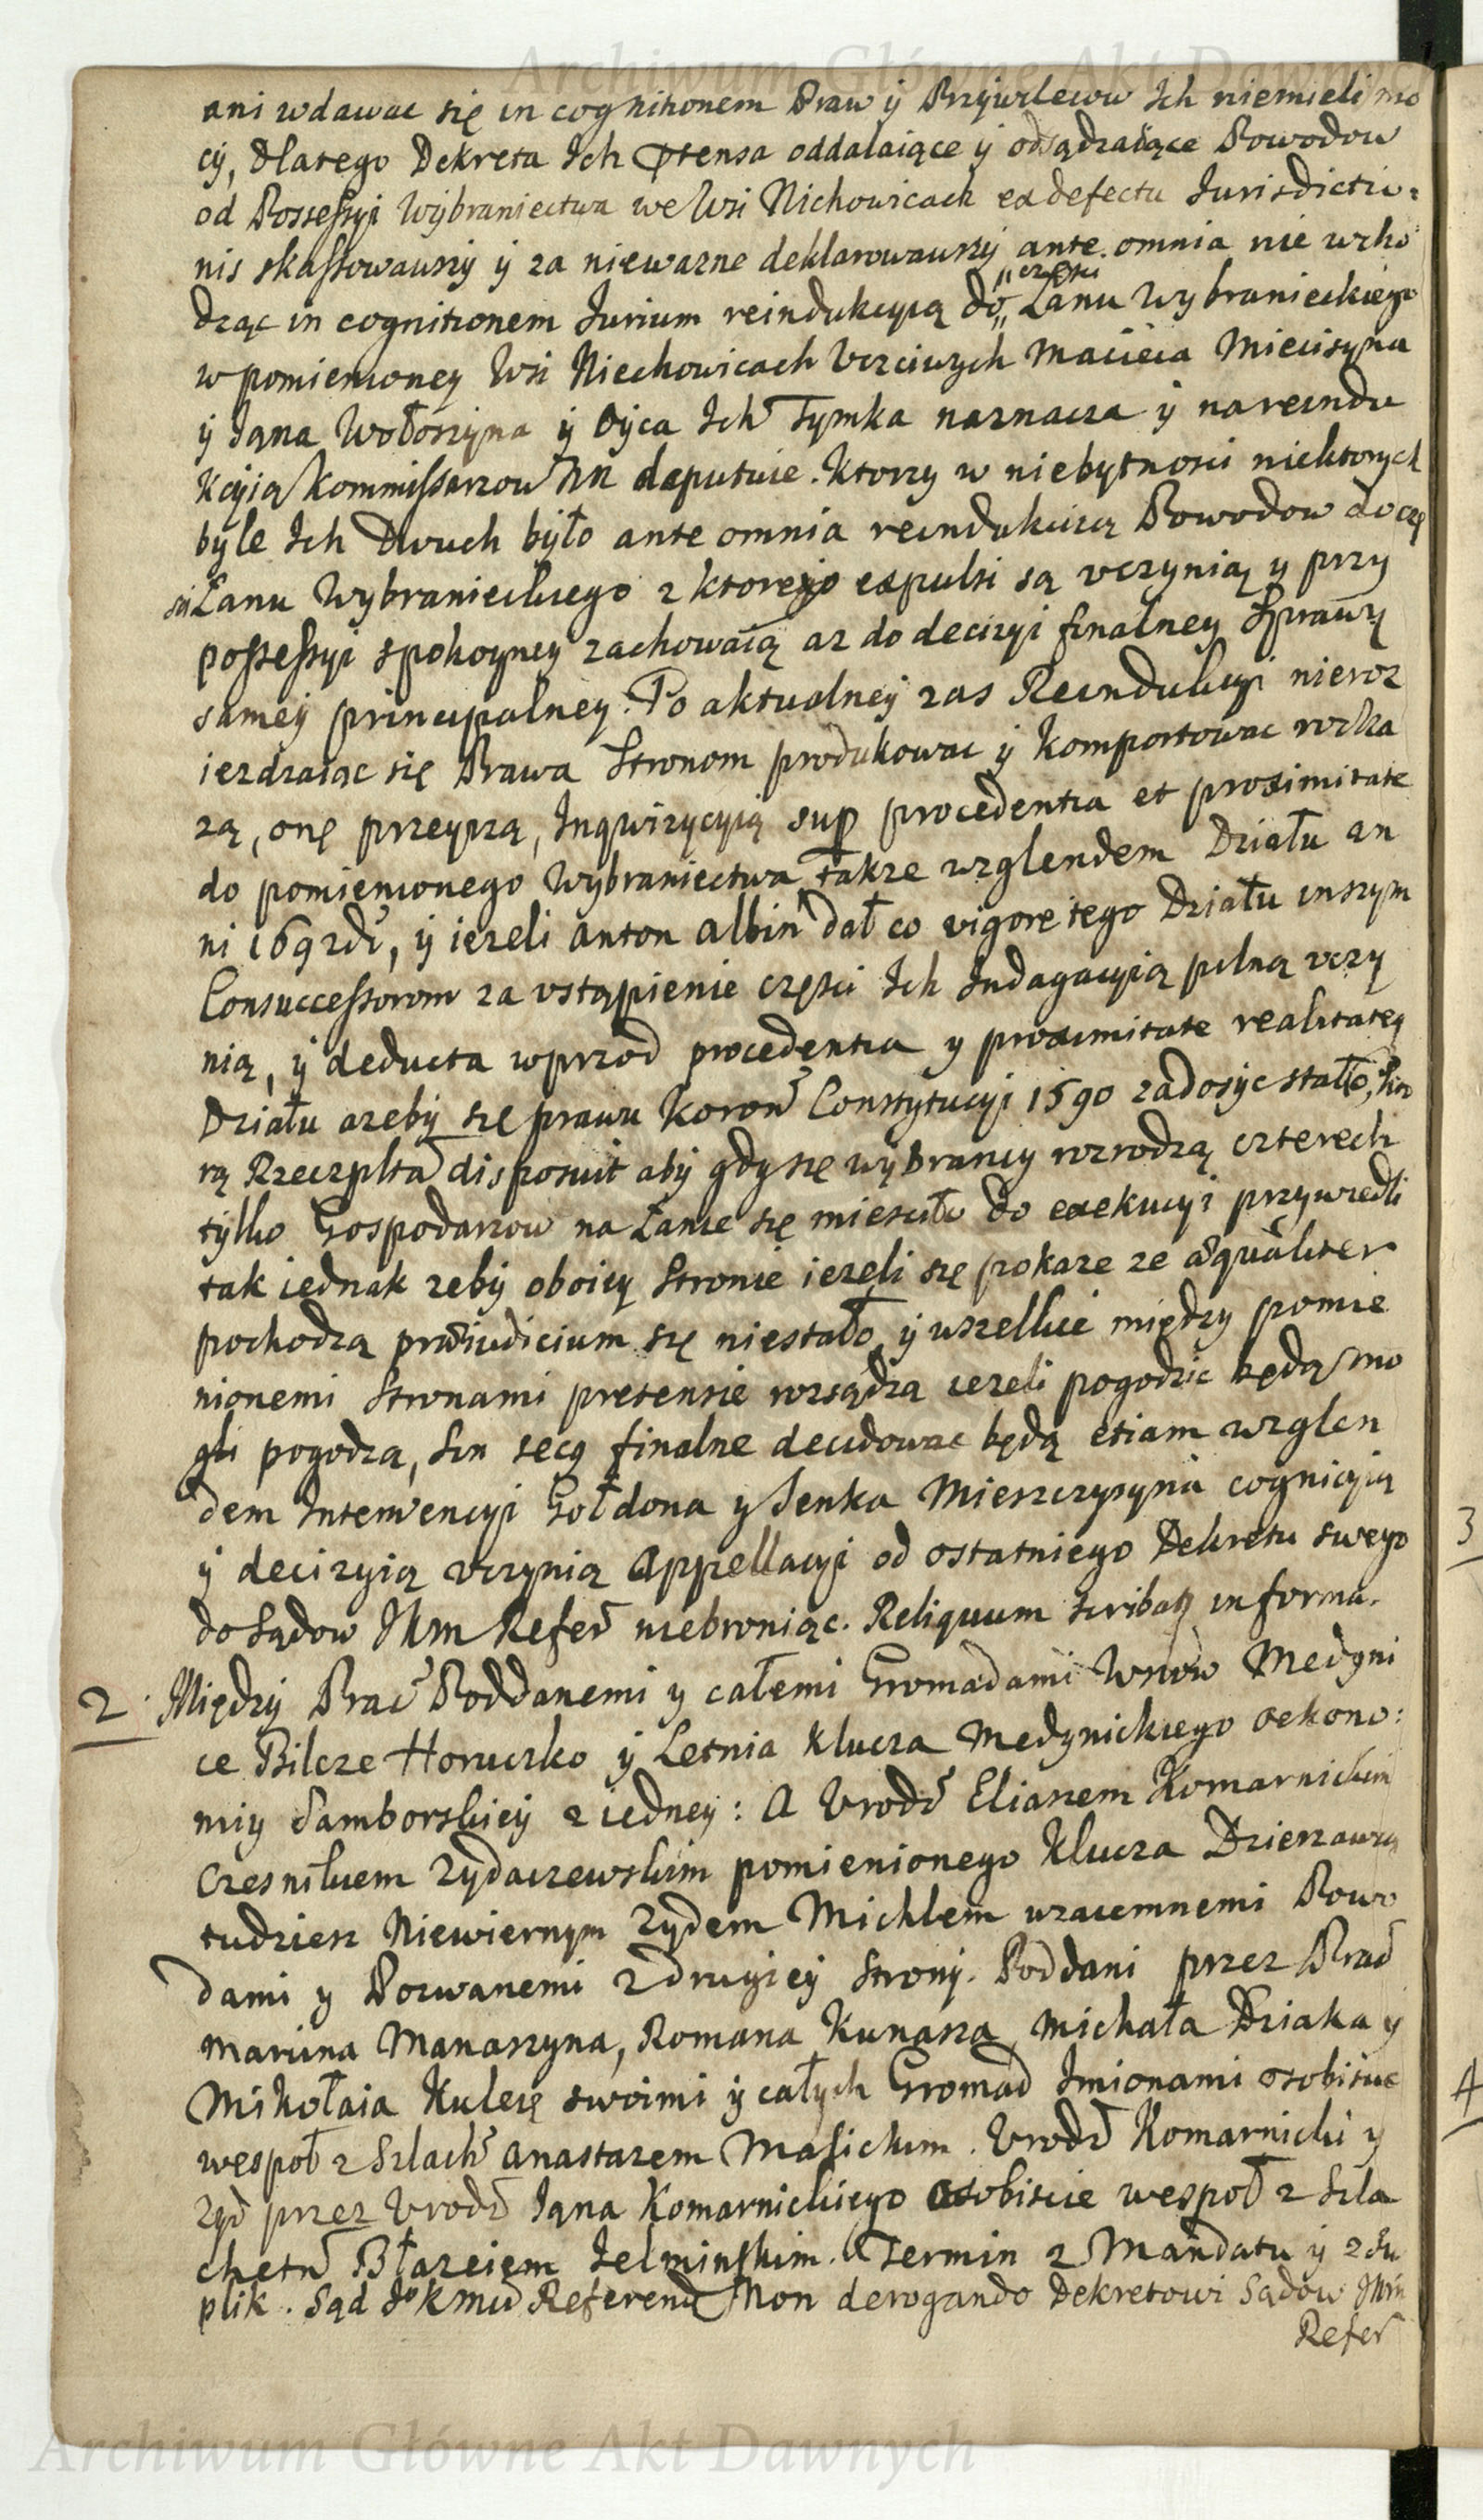 Archiwum Główne Akt Dawnych
ani wdawac się in cognitionem Praw y Przywilewow Ich niemieli mo
cy, dlatego Dekreta Ich prtensa oddalaiące y odsądzaiące Powodow
od Possessyi Wybraniectwa we Wsi Nichowicach ex defectu Jurisdictio:
nis skassowawszy y za niewazne deklarowawszy ante omnia nie wcho
dząc in cognitionem Jurium reindukcyią do części Łanu Wybranieckiego
w pomienioney Wsi Niechowicach Vczciwych Macieia Miecisyna
y Jana Wołoszyna y Oyca Ich Tymka naznacza y na reindu
kcyią Kommissarzow NN deputuie. Ktorzy w niebytnosci niektorych
byle Ich Dwuch było ante omnia reindukcią Powodow do czę
sci Łanu Wybranieckiego z ktorego expulsi są vczynią y przy
possessyi spokoyney zachowaią az do decizyi finalney Sprawy
samey principalney. Po aktualney zas Reindukcyi nieroz
iezdzaiąc się Prawa Stronom produkowac y komportowac rozka
zą, onę przeyrzą, Inqwizycyią sup procedentia et proximitate
do pomienionego Wybraniectwa takze wzglendem Działu an
ni 1692di, y iezeli Anton Albin dał co vigore tego Działu inszym
Consuccessorom za vstąpienie części Ich Indagacyią pilną vczy
nią, y deducta wprzod procedentia y proximitate realitatey
Działu azeby się prawu Koron Constytucyi 1590 zadosyc stało, kto
rą Rzeczplta disposuit aby gdy się wybrancy rozrodzą czterech
tylko Gospodarzow na Łanie się miesciło do exekucyi przywiedli
tak iednak zeby oboiey Stronie iezeli się pokaze ze aequaliter
pochodzą praeiudicium się niestało, y wszelkie między pomie
nionemi Stronami pretensie rozsądzą iezeli pogodzic będą mo
gli pogodzą, Sin secq finalne decidowac będą etiam wzglen
dem Intervencyi Gołdona y Senka Mieszczysyna cognicyią
y decizyią vczynią Appellacyi od ostatniego Dekretu swego
do Sądow JKm Refer niebroniąc. Reliquum scribat in forma.
2. Między Prac Poddanemi y całemi Gromadami Wsiow Medyni
ce Bilcze Horucko y Letnia klucza Medynickiego oekono:
miy Samborskiey z iedney: A Vrodz Eliaszem Komarnickim
Czesnikiem Zydaczewskim pomienionego Klucza Dzierzawcą
tudziesz Niewiernym Zydem Michlem wzaiemnemi Powo
dami y Pozwanemi z drugiey Strony. Poddani przez Prac
Marcina Manaszyna, Romana Kunasza, Michała Dziaka y
Mikołaia Kulesę swoimi y całych Gromad Imionami osobiscie
wespoł z Szlach Anastazem Masickim. Vrodz Komarnicki y
Zyd przez Vrodz Jana Komarnickiego osobiscie wespoł z Szla
chetn Błazeiem Jelminskim. Termin z Mandatu y z Su
plik. Sąd Jo KMci Referend Non derogando Dekretowi Sądow JKm
Refer
3
4
Archiwum Główne Akt Dawnych